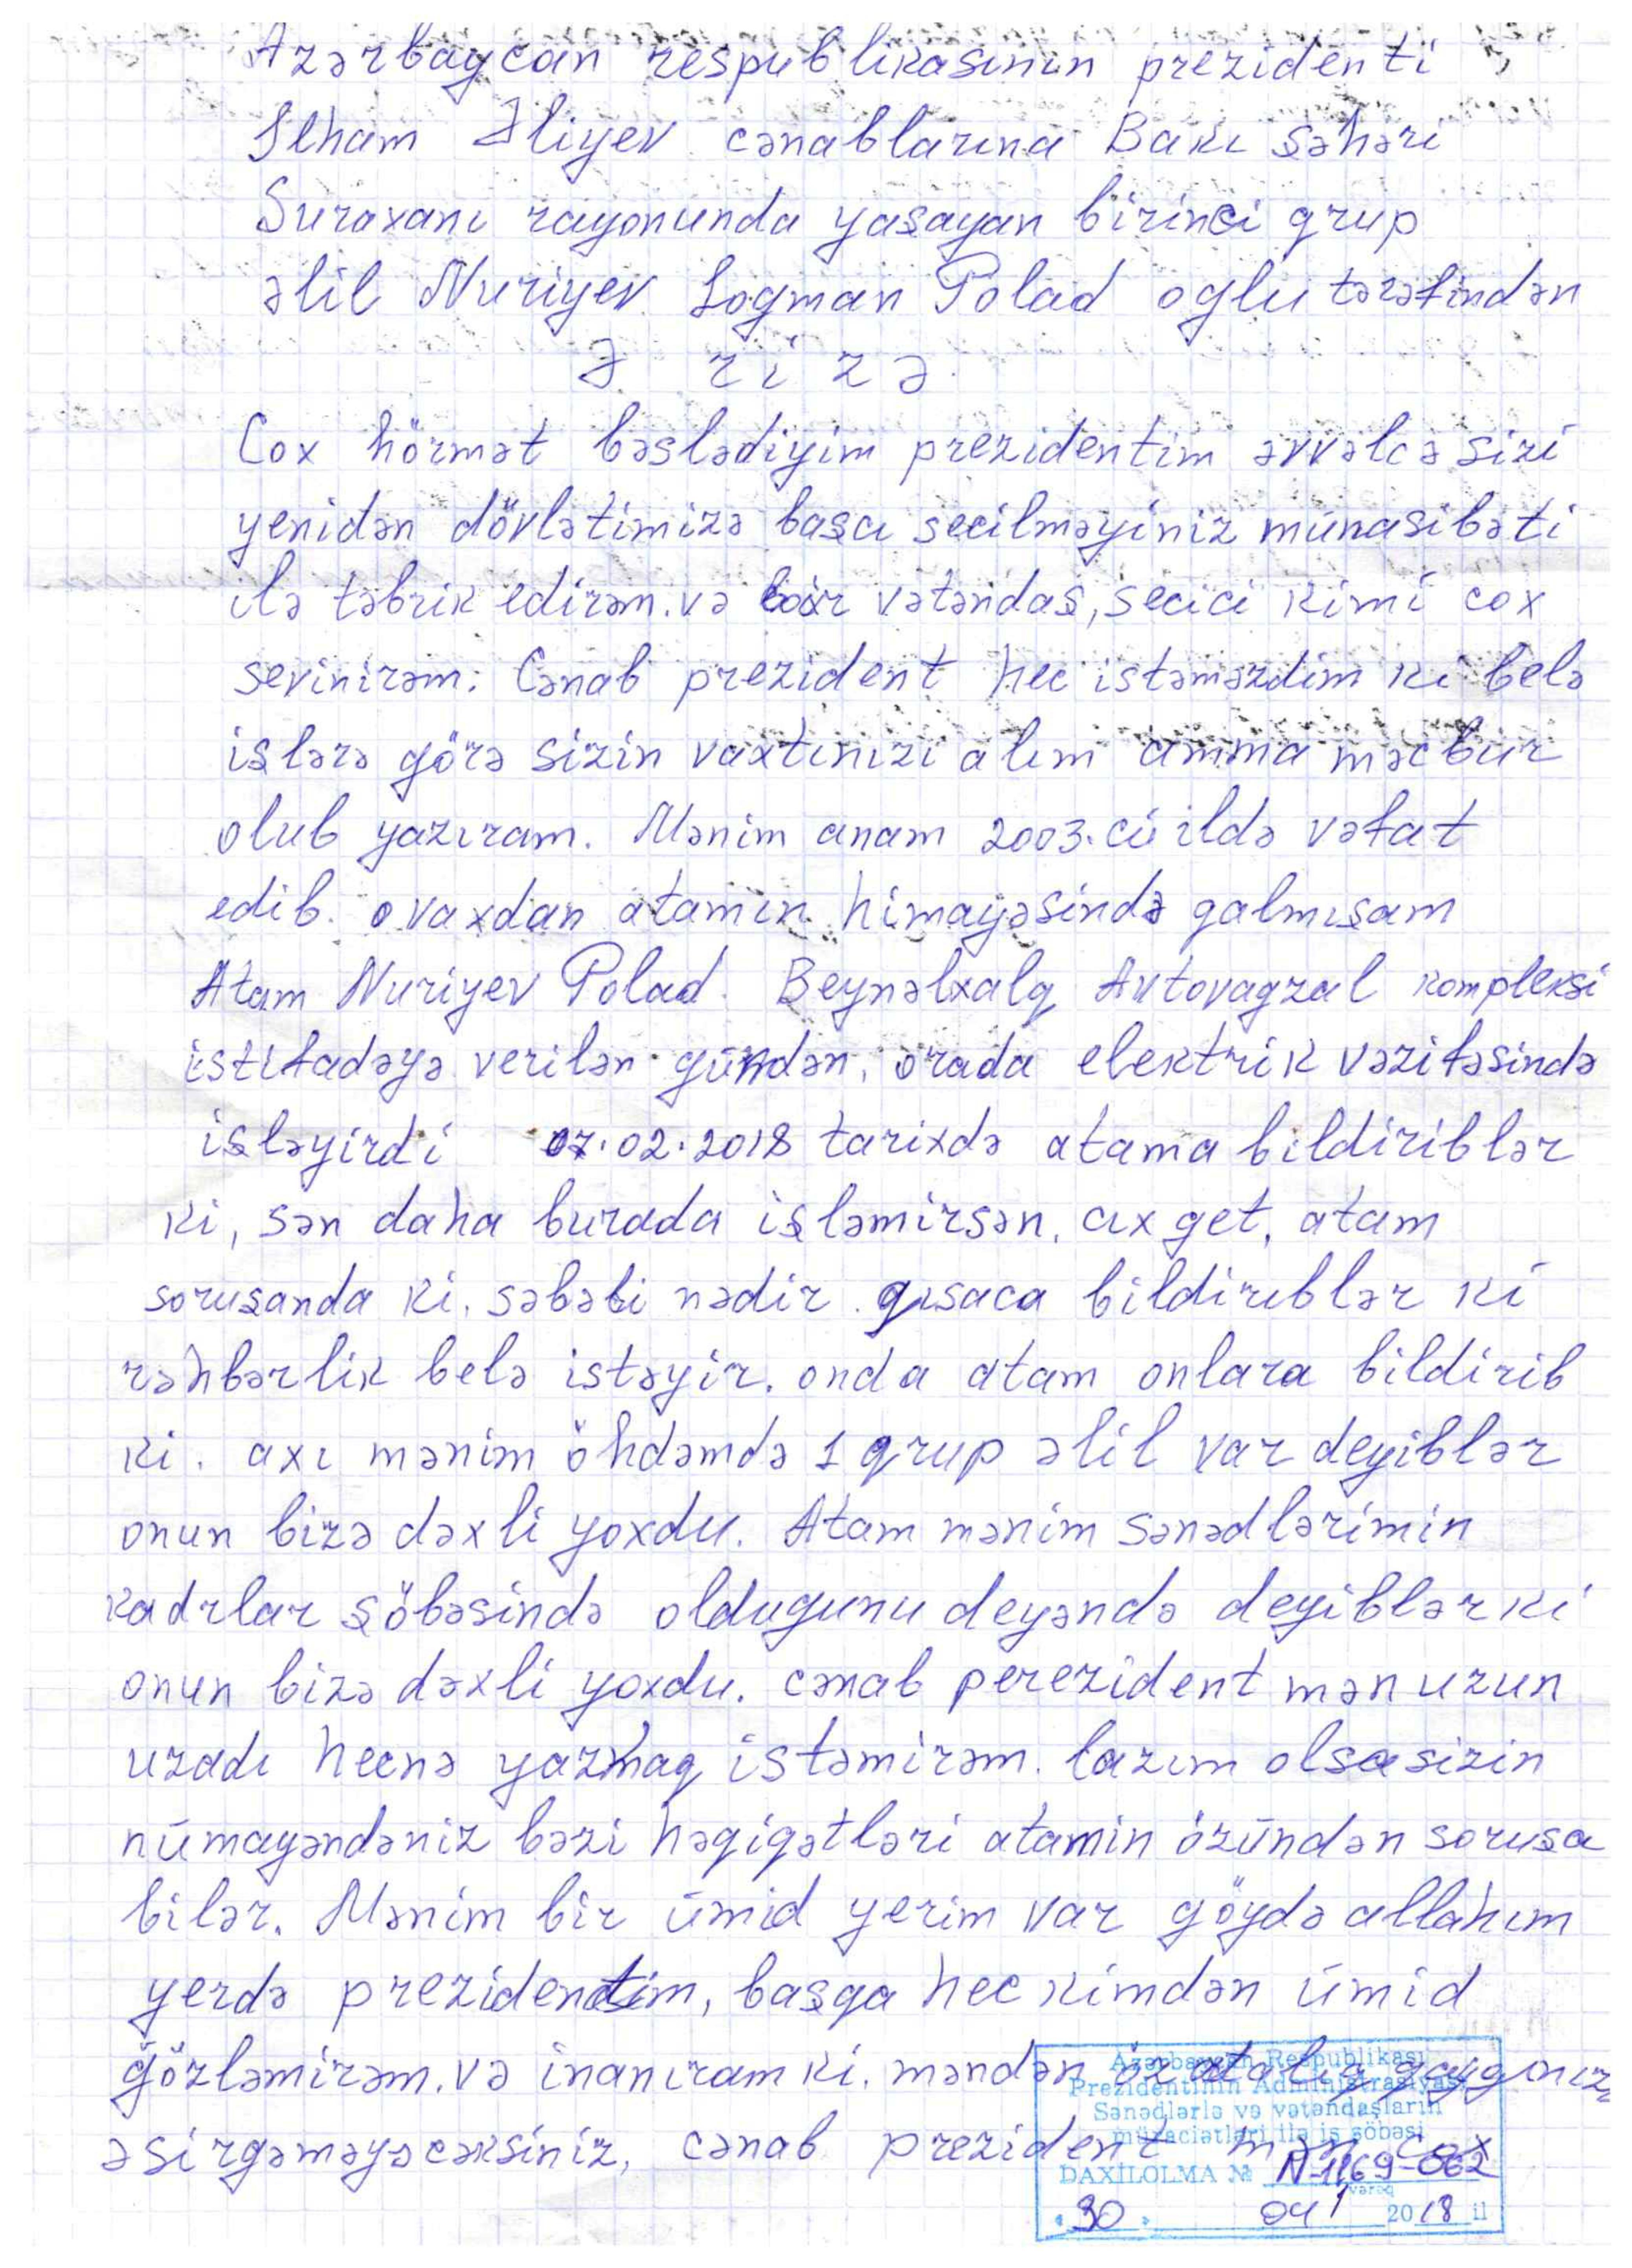 Azərbaycan respublikasının prezidenti
İlham Əliyev cənablarına Bakı şəhəri
Suraxanı rayonunda yaşayan birinci grup
əlil Nuriyev Logman Polad oglu tərəfindən
Ə r i z ə
Cox hörmət bəslədiyim prezidentim əvvəlcə sizi
yenidən dövlətimizə başcı secilməyiniz münasibəti
ilə təbrik edirəm. və bir vətəndaş, secici kimi cox
sevinirəm. Cənab prezident hec istəməzdim ki belə
işlərə görə sizin vaxtınızı alım amma məcbur
olub yazıram. Mənim anam 2003.cü ildə vəfat
edib. o vaxdan atamın himayəsində galmışam
Atam Nuriyev Polad. Beynəlxalg Avtovagzal kompleksi
istifadəyə verilən gündən, orada elektrik vəzifəsində
işləyirdi 07.02.2018 tarixdə atama bildiriblər
ki, sən daha burada işləmirsən, cıx get, atam
soruşanda ki, səbəbi nədir. gısaca bildiriblər ki
rəhbərlik belə istəyir. onda atam onlara bildirib
ki. axı mənim öhdəmdə 1 grup əlil var deyiblər
onun bizə dəxli yoxdu. Atam mənim sənədlərimin
kadrlar şöbəsində oldugunu deyəndə deyiblər ki
onun bizə dəxli yoxdu. cənab perezident mən uzun
uzadı hecnə yazmag istəmirəm. lazım olsa sizin
nümayəndəniz bəzi həgigətləri atamin özündən soruşa
bilər. Mənim bir ümid yerim var göydə allahım
yerdə prezidentim, başga hec kimdən ümid
gözləmirəm. və inanıram ki. məndən öz atalıg gaygınızı
əsirgəməyəcəksiniz, cənab prezident mən cox
Azərbaycan Respublikası
Prezidentinin Administrasiyası
Sənədlərlə və vətəndaşların
müraciətləri ilə iş şöbəsi
DAXİLOLMA № N-1169-062
vərəq
« 30 » 04 2018 il